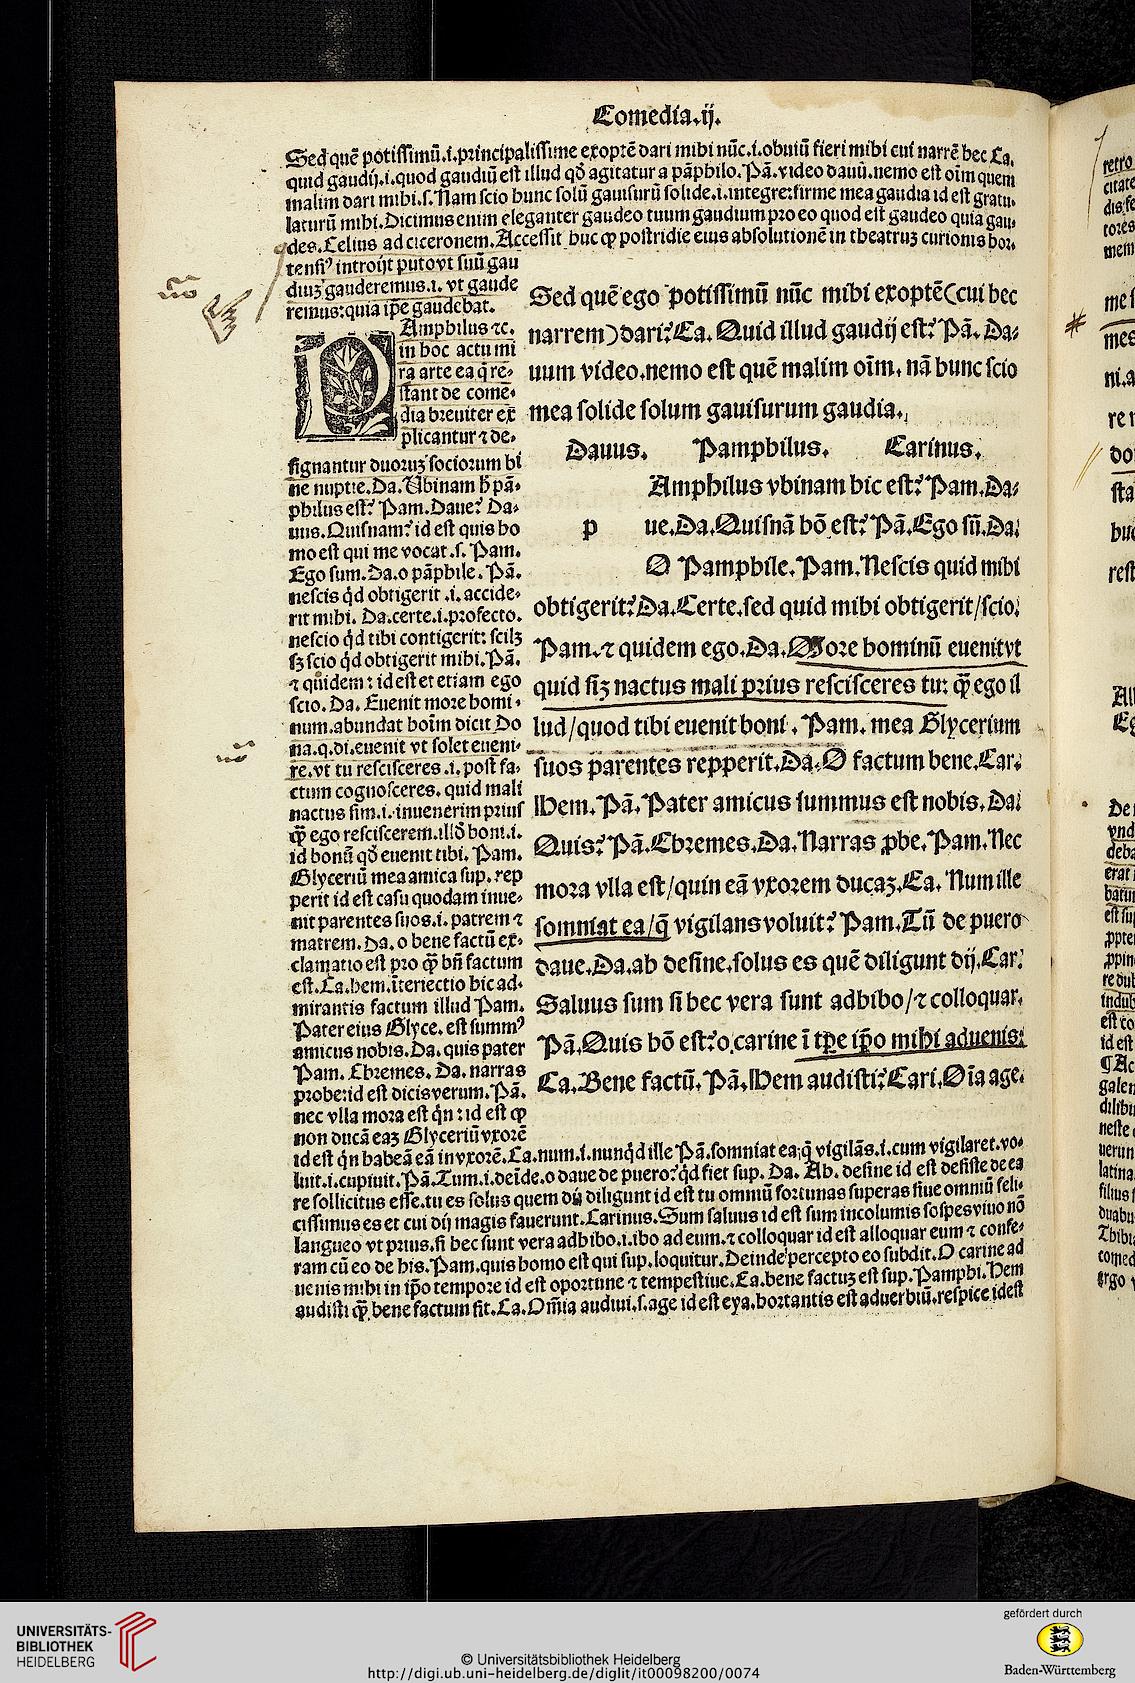 Comedia.ij.
Sed quē potissimū.i.principalissime exoptē dari mihi nūc.i.obuiū fieri mihi cui narrē hec Ca.
quid gaudij.i.quod gaudiū est illud qď agitatur a pāphilo.Pā.video dauū.nemo est oīm quem
malim dari mihi.s.Nam scio hunc solū gauisurū solide.i.integre:firme mea gaudia id est gratu⸗
laturū mihi.Dicimus enim eleganter gaudeo tuum gaudium pro eo quod est gaudeo quia gau⸗
des.Celius ad ciceronem.Accessit huc ꝙ postridie eius absolutionē in theatruꝫ curionis hor⸗
tensiꝰ introijt puto vt suū gau
diuꝫ gauderemus.i. vt gaude
remus:quia ip̄e gaudebat.
PAmphilus ⁊c.
in hoc actu mi
ra arte ea q̄ re⸗
stant de come⸗
dia breuiter ex
plicantur ⁊ de⸗
signantur duoruꝫ sociorum bi
ne nuptie.Da.Vbinam h̄ pā⸗
philus est? Pam.Daue? Da⸗
uus.Quisnam? id est quis ho
mo est qui me vocat.s. Pam.
Ego sum.Da.o pāphile. Pā.
nescis qď obtigerit .i. accide⸗
rit mihi. Da.certe.i.profecto.
nescio qď tibi contigerit: scilꝫ
sꝫ scio qď obtigerit mihi.Pā.
⁊ quidem: id est et etiam ego
scio. Da. Euenit more homi⸗
num.abundat hoīm dicit Do
na.q.di.euenit vt solet eueni⸗
re.vt tu rescisceres .i. post fa⸗
ctum cognosceres. quid mali
nactus sim.i. inuenerim prius
ꝙ̄ ego resciscerem.illď boni.i.
id bonū qď euenit tibi. Pam.
Glyceriū mea amica sup. rep
perit id est casu quodam inue⸗
nit parentes suos.i. patrem ⁊
matrem. Da. o bene factū ex⸗
clamatio est pro ꝙ̄ bn̄ factum
est.Ca.hem.īteriectio hic ad⸗
mirantis factum illud Pam.
Pater eius Glyce. est summꝰ
amicus nobis.Da. quis pater
Pam. Chremes. Da. narras
probe:id est dicis verum. Pā.
nec vlla mora est qn̄: id est ꝙ
non ducā eaꝫ Glyceriū vxorē
Sed quē ego potissimū nūc mihi exoptē(cui hec
narrem)dari?Ca.Quid illud gaudij est?Pā.Da⸗
uum video.nemo est quē malim oīm. nā hunc scio
mea solide solum gauisurum gaudia.
Dauus. Pamphilus. Carinus.
pAmphilus vbinam hic est?Pam.Da⸗
ue.Da.Quisnā hō est?Pā.Ego sū.Da.
O Pamphile.Pam.Nescis quid mihi
obtigerit?Da.Certe.sed quid mihi obtigerit/scio.
Pam.⁊ quidem ego.Da.More hominū euenit vt
quid siꝫ nactus mali prius rescisceres tu: ꝙ̄ ego il
lud/quod tibi euenit boni. Pam. mea Glycerium
suos parentes repperit.Da.O factum bene.Car.
Hem.Pā.Pater amicus summus est nobis.Da.
Quis?Pā.Chremes.Da.Narras ꝓbe.Pam.Nec
mora vlla est/quin eā vxorem ducaꝫ.Ca. Num ille
somniat ea/q̄ vigilans voluit? Pam.Tū de puero
daue.Da.ab desine.solus es quē diligunt dij.Car.
Saluus sum si hec vera sunt adhibo/⁊ colloquar.
Pā.Quis hō est?o carine ī tp̄e ip̄o mihi aduenis.
Ca.Bene factū.Pā.Hem audisti?Cari.Oīa age.
id est qn̄ habeā eā in vxorē.Ca.num.i.nunqď ille Pā.somniat ea:q̄ vigilās.i.cum vigilaret.vo⸗
luit.i.cupiuit.Pā.Tum.i.deīde.o daue de puero?qď fiet sup. Da. Ab. desine id est desiste de ea
re sollicitus esse.tu es solus quem dij diligunt id est tu omniū fortunas superas siue omniū feli⸗
cissimus es et cui dij magis fauerunt.Carinus.Sum saluus id est sum incolumis sospes viuo nō
langueo vt prius.si hec sunt vera adhibo.i.ibo ad eum.⁊ colloquar id est alloquar eum ⁊ confe⸗
ram cū eo de his.Pam.quis homo est qui sup.loquitur.Deinde percepto eo subdit.O carine ad
uenis mihi in ip̄o tempore id est oportune ⁊ tempestiue.Ca.bene factuꝫ est sup.Pamphi.Hem
audisti ꝙ̄ bene factum sit.Ca.Om̄ia audiui.s.age id est eya.hortantis est aduerbiū.respice id est
retro
citate
dis:se
tores
mem
mes
ni.a
re
sta
rest
Ego
vnd
deba
erat
ꝓpte
ꝓpin
re
indub
est co
id est
¶Ac
galen
neste
uerun
latina
filius
duabu
comed
ergo
UNIVERSITÄTS-
BIBLIOTHEK
HEIDELBERG
© Universitätsbibliothek Heidelberg
http://digi.ub.uni-heidelberg.de/diglit/it00098200/0074
gefördert durch
Baden-Württemberg